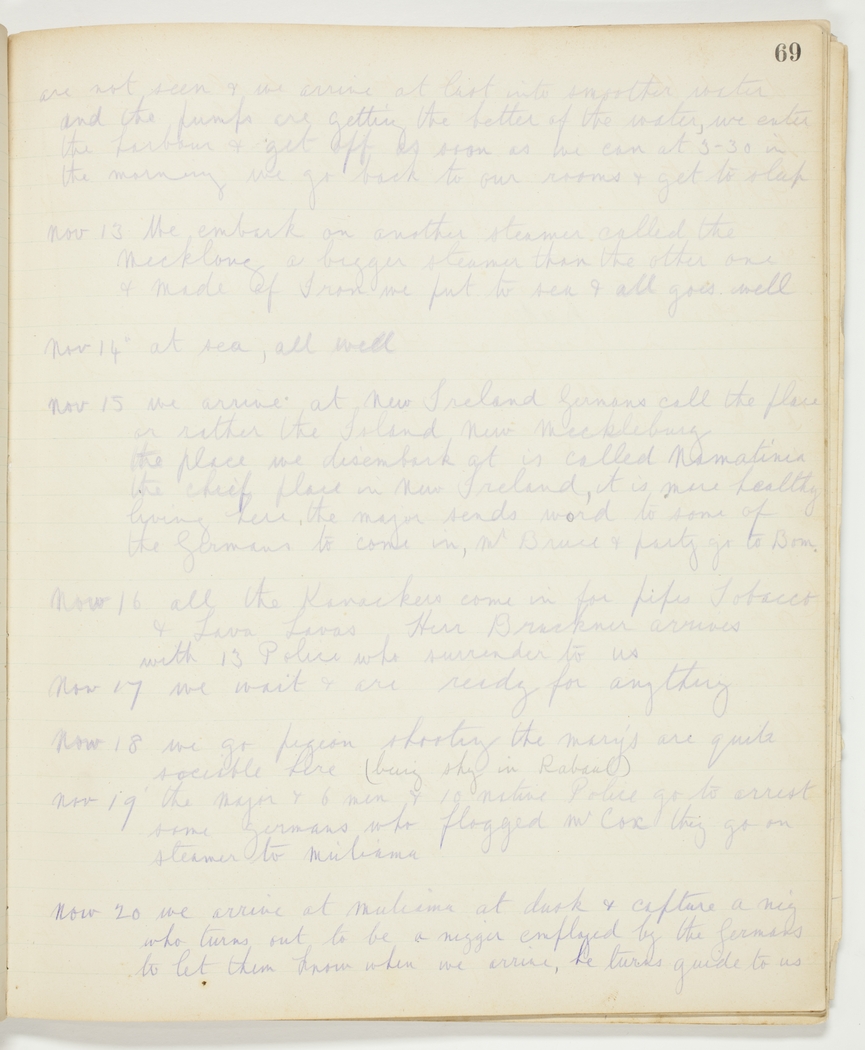 69
are not seen & we arrive at last into smoother water
and the pumps are getting the better of the water, we enter
the harbour & get off as soon as we can at 3-30 in
the morning we go back to our rooms & get to slap
Nov 13 We embark on another steamer called the
Mecklong a bigger steamer than the other one
& made of Iron we put to sea & all goes well
Nov 14 at sea, all well
Nov 15 we arrive at New Ireland Germans call the place
or rather the Island New Meckleburg
the place we disembark at is called Namatinia
the chief place in New Ireland, it is more healthy
living here, the major sends word to some of
the Germans to come in, Mr Bruce & party go to Bom.
Nov 16 all the Kanackers come in for pipes Tobacco
& Lava Lavas Herr Bruckner arrives
with 13 Police who surrender to us
Nov 17 we wait & are ready for anything
Nov 18 we go pigeon shooting the marys are quite
sociable here (being shy in Rabaul)
Nov 19 the major & 6 men & 10 native Police go to arrest
some germans who flogged Mr Cox they go on
steamer to Muliama
Nov 20 we arrive at Muliama at dusk & capture a nig
who turns out to be a nigger employed by the Germans
to let them know when we arrive, he turns guide to us